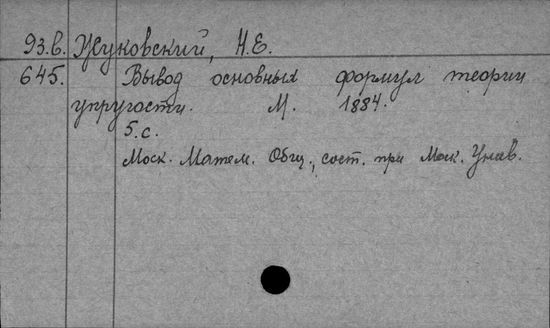 93.в. Жуковский, Н.Е.
645. Вывод основных формул теории
упругости. М. 1884.
5.с.
Моск. Матем. Общ., сост. при Моск. Унив.